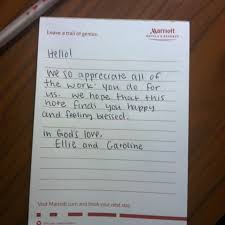 Leave a trail of genius.
Marriott
HOTELS & RESORTS
Hello!
We so appreciate all of
the work you do for
us. We hope that this
note finds you happy
and feeling blessed.
In God's love,
Ellie and Caroline
Visit Marriott.com and book your next stay.